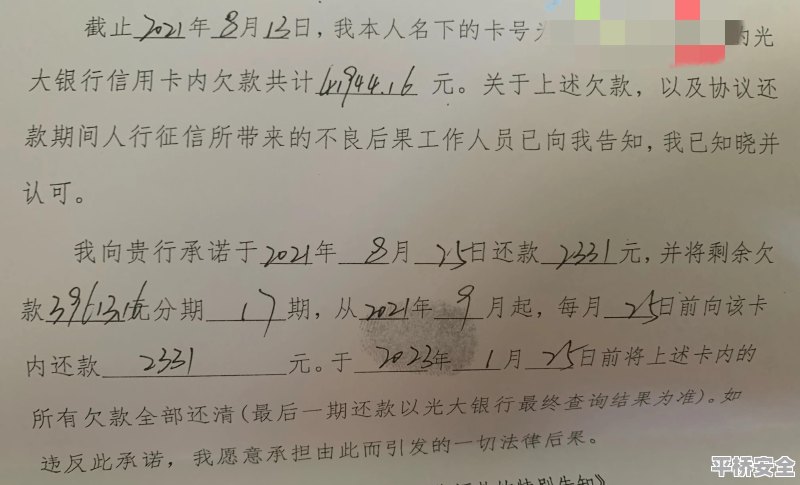 截止2021年8月13日,我本人名下的卡号为 的光
大银行信用卡内欠款共计41944.16元。关于上述欠款,以及协议还
款期间人行征信所带来的不良后果工作人员已向我告知,我已知晓并
认可。
我向贵行承诺于2021年8月25日还款2331元,并将剩余欠
款39613.16元分期17期,从2021年9月起,每月25日前向该卡
内还款2331元。于2023年1月25日前将上述卡内的
所有欠款全部还清(最后一期还款以光大银行最终查询结果为准)。如
违反此承诺,我愿意承担由此而引发的一切法律后果。
特别告知》
平桥安全